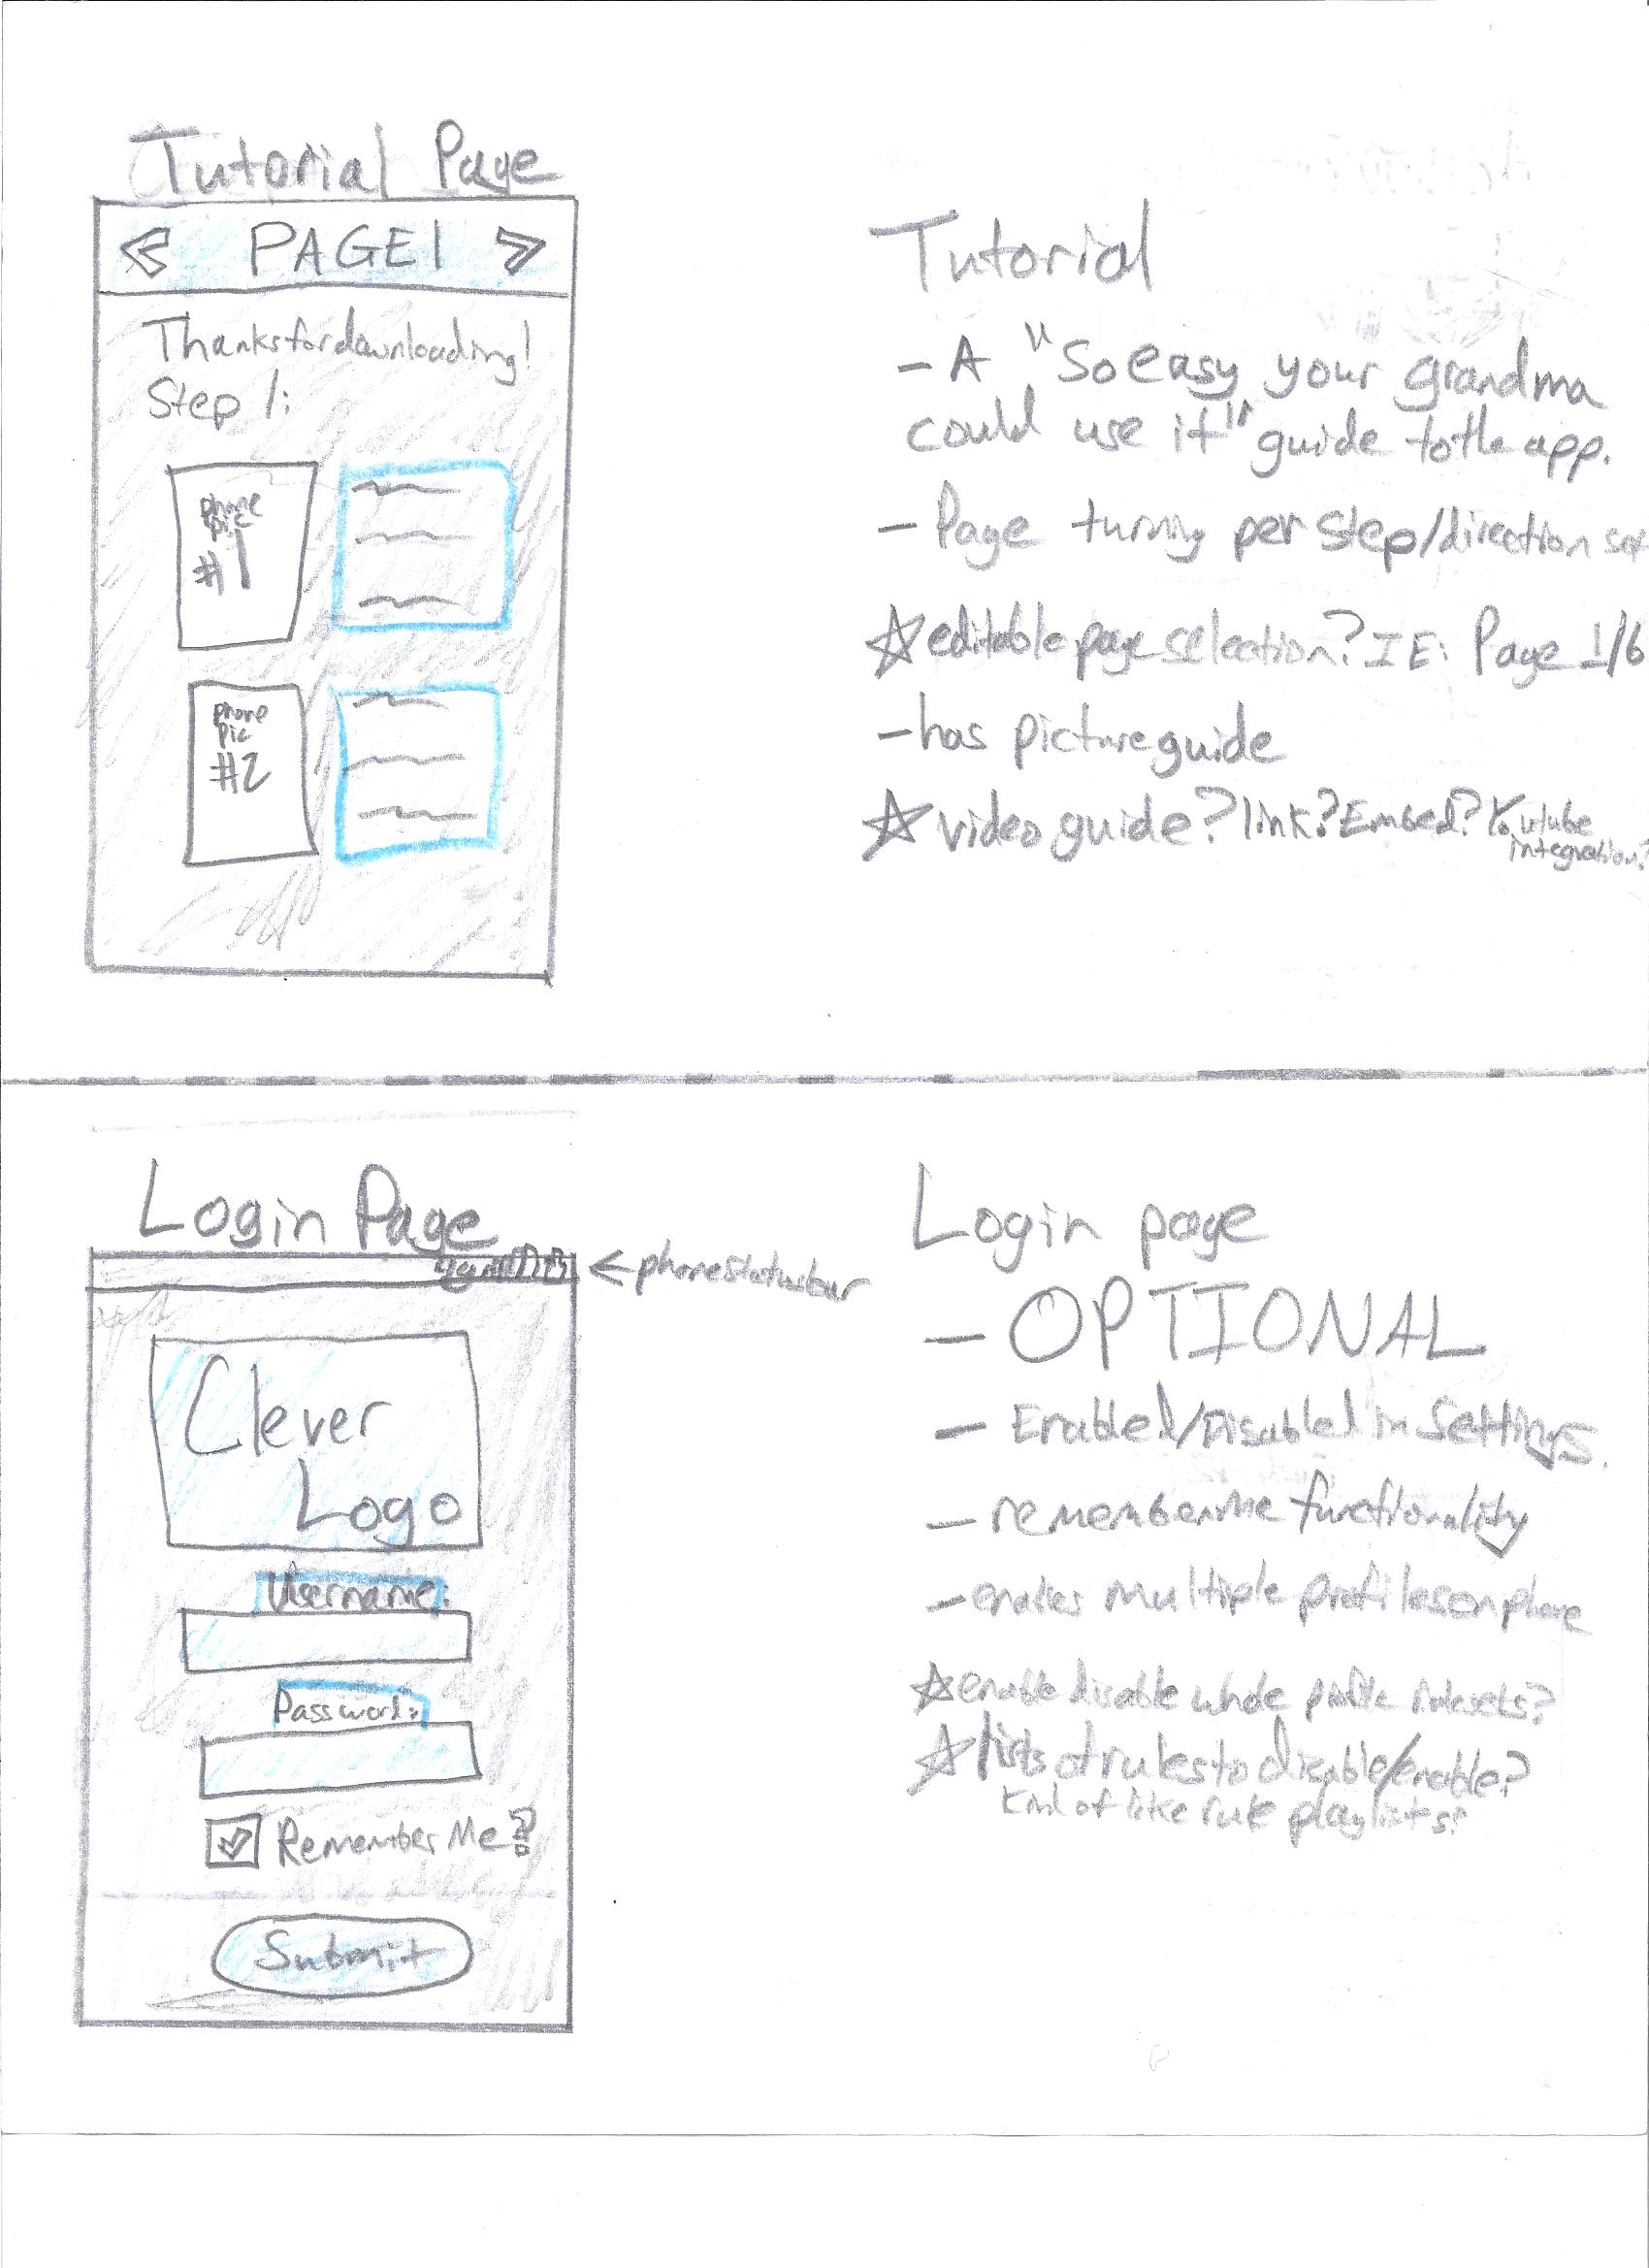 Tutorial Page
< PAGE 1 >
Thanks for downloading!
Step 1:
phone
pic
#1
phone
pic
#2
Tutorial
- A "So easy your grandma
could use it" guide to the app.
- Page turning per step/direction set
☆ editable page selection? IE: Page 1/6
- has picture guide
☆ video guide? link? Embed? Youtube
integration?
Login Page
← phone status bar
Clever
Logo
Username:
Password:
Remember Me?
Submit
Login page
- OPTIONAL
- Enabled/Disabled in Settings.
- remember me functionality
- enables multiple profiles on phone
☆ enable disable whole profile rulesets?
☆ lists of rules to disable/enable?
Kind of like rule playlists?